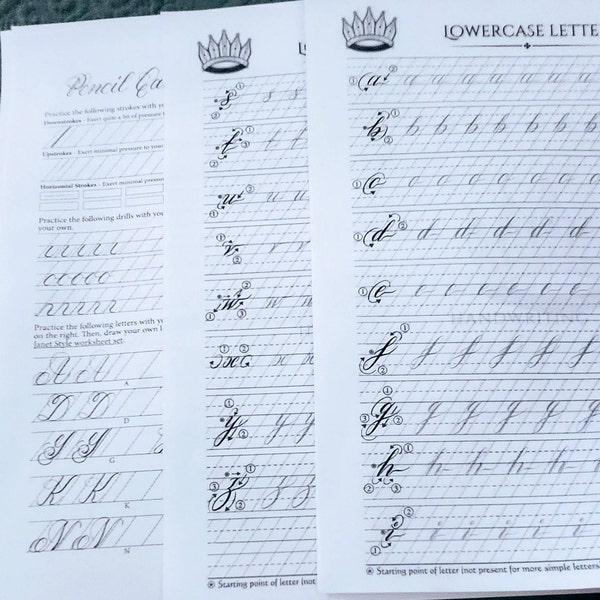 Pencil Ca
Practice the following strokes with yo
Downstrokes - Exert quite a bit of pressure t
Upstrokes - Exert minimal pressure to your
Horizontal Strokes - Exert minimal pressure
Practice the following drills with you
your own.
Practice the following letters with yo
on the right. Then, draw your own l
Janet Style worksheet set.
A A A
D D D
G G G
K K K
N N N
L
① ② s s s
① ② ③ t t t
① ② u u u
① ② v v v
① ② w w w
① ② x x x
① ② y y y
① ② z z z
Starting point of letter (not
Lowercase Lette
① ② a a a a a a
① ② b b b b b b
① c c c c c c
① ② d d d d d d
① e e e e e e
① ② f f f f f f
① ② ③ g g g g g g
① ② ③ h h h h h h
① ② i i i i i i
Starting point of letter (not present for more simple letters